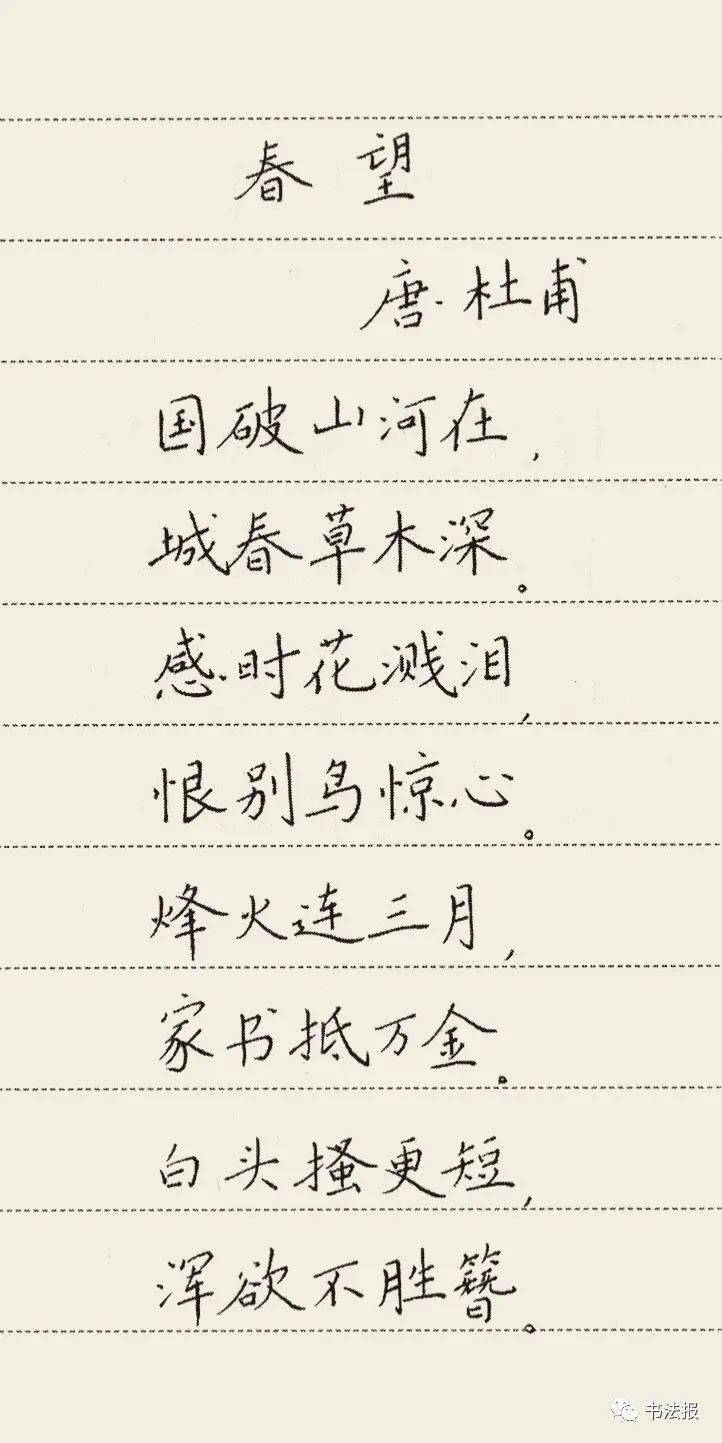 春望
唐·杜甫
国破山河在，
城春草木深。
感时花溅泪，
恨别鸟惊心。
烽火连三月，
家书抵万金。
白头搔更短，
浑欲不胜簪。
书法报